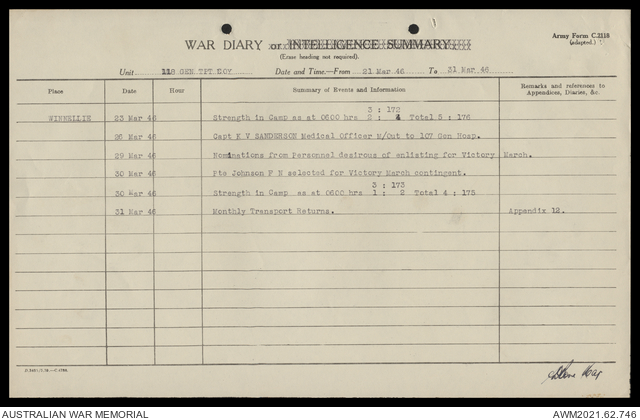 WAR DIARY or INTELLIGENCE SUMMARY.
(Erase heading not required).
Army Form C.2118
(adapted.)
Unit 118 GEN TPT COY Date and Time.—From 21 Mar 46 To 31 Mar 46
Place Date Hour Summary of Events and Information Remarks and references to Appendices, Diaries, &c.
3 : 172
23 Mar 46 Strength in Camp as at 0600 hrs 2 : 4 Total 5 : 176
26 Mar 46 Capt K V SANDERSON Medical Officer M/Out to 107 Gen Hosp.
29 Mar 46 Nominations from Personnel desirous of enlisting for Victory March.
30 Mar 46 Pte Johnson F N selected for Victory March contingent.
3 : 173
30 Mar 46 Strength in Camp as at 0600 hrs 1 : 2 Total 4 : 175
31 Mar 46 Monthly Transport Returns. Appendix 12.
AUSTRALIAN WAR MEMORIAL AWM2021.62.746